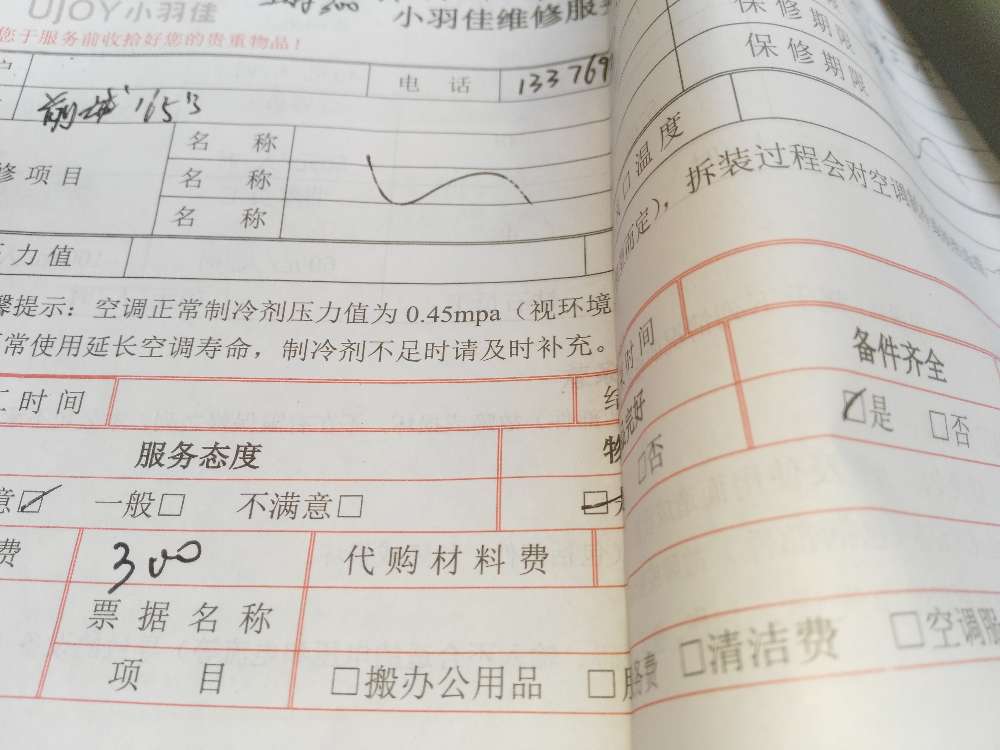 UJOY小羽佳
小羽佳维修服
您于服务前收拾好您的贵重物品！
电 话 133769
165
名 称
修项目 名 称
名 称
压力值
馨提示：空调正常制冷剂压力值为 0.45mpa（视环境
常使用延长空调寿命，制冷剂不足时请及时补充。
工时间
服务态度
意☑ 一般□ 不满意□
费 300 代购材料费
票据名称
项 目 □搬办公用品 □服务费 □清洁费 □空调
保修期限
保修期限
□温度
而定），拆装过程会对空调
时间
备件齐全
完好
☑是 □否
□否